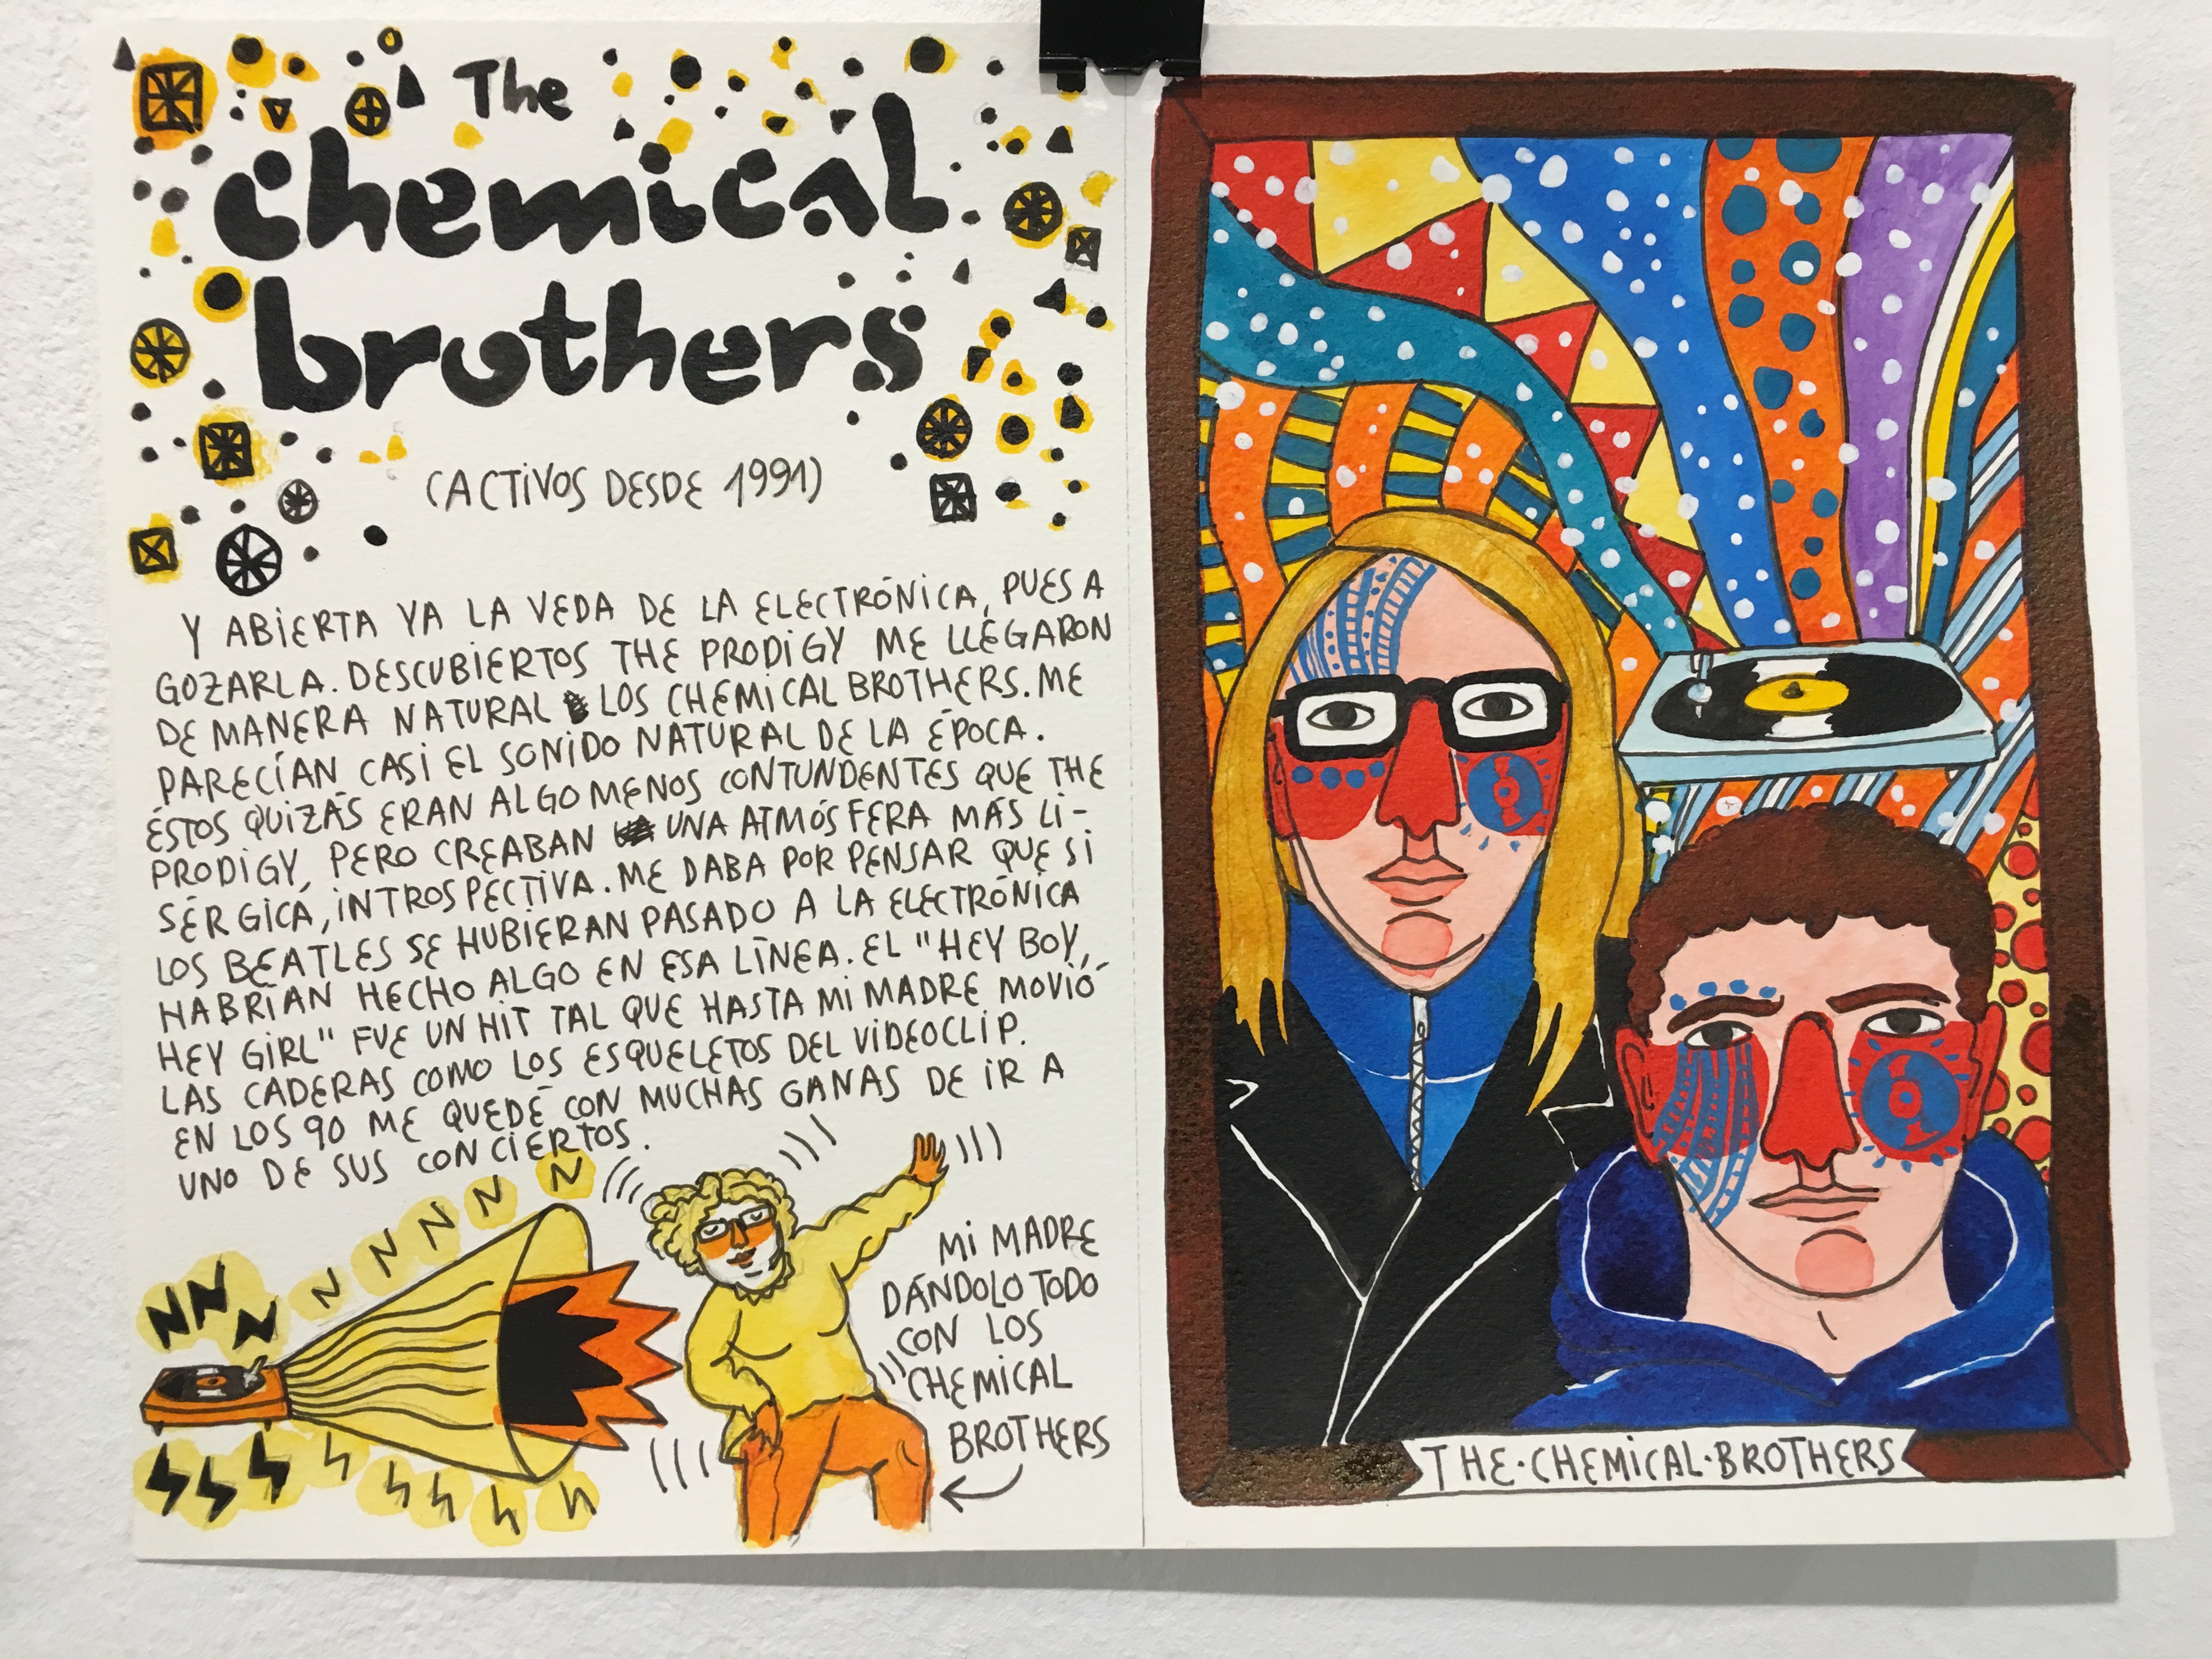 The
chemical
brothers
(ACTIVOS DESDE 1991)
Y ABIERTA YA LA VEDA DE LA ELECTRÓNICA, PUES A
GOZARLA. DESCUBIERTOS THE PRODIGY ME LLEGARON
DE MANERA NATURAL LOS CHEMICAL BROTHERS. ME
PARECÍAN CASI EL SONIDO NATURAL DE LA ÉPOCA.
ÉSTOS QUIZÁS ERAN ALGO MENOS CONTUNDENTES QUE THE
PRODIGY, PERO CREABAN UNA ATMÓSFERA MÁS LI-
SÉRGICA, INTROSPECTIVA. ME DABA POR PENSAR QUE SI
LOS BEATLES SE HUBIERAN PASADO A LA ELECTRÓNICA
HABRÍAN HECHO ALGO EN ESA LÍNEA. EL "HEY BOY,
HEY GIRL" FUE UN HIT TAL QUE HASTA MI MADRE MOVIÓ
LAS CADERAS COMO LOS ESQUELETOS DEL VIDEOCLIP.
EN LOS 90 ME QUEDÉ CON MUCHAS GANAS DE IR A
UNO DE SUS CONCIERTOS.
MI MADRE
DÁNDOLO TODO
CON LOS
CHEMICAL
BROTHERS
THE·CHEMICAL·BROTHERS